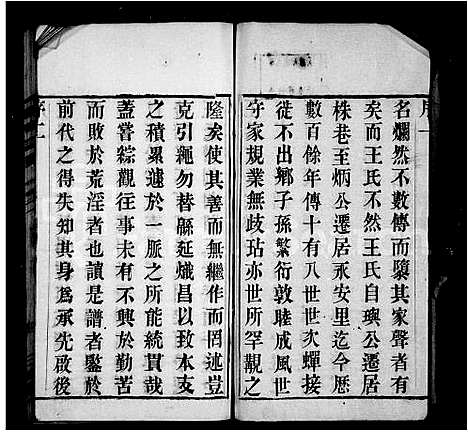 序一
名爛然不數傳而隳其家聲者有
矣而王氏不然王氏自璵公遷居
株巷至炳公遷居永安里迄今歷
數百餘年傳十有八世世次蟬接
徙不出鄉子孫繁衍敦睦成風世
守家規業無歧玷亦世所罕覯之
隆矣使其善而無繼作而無述豈
克引繩勿替緜延熾昌以致本支
之積累遽於一脈之所能統貫哉
蓋嘗綜觀往事未有不興於勤苦
而敗於荒淫者也讀是譜者鑒於
前代之得失知其身爲承先啟後
序二